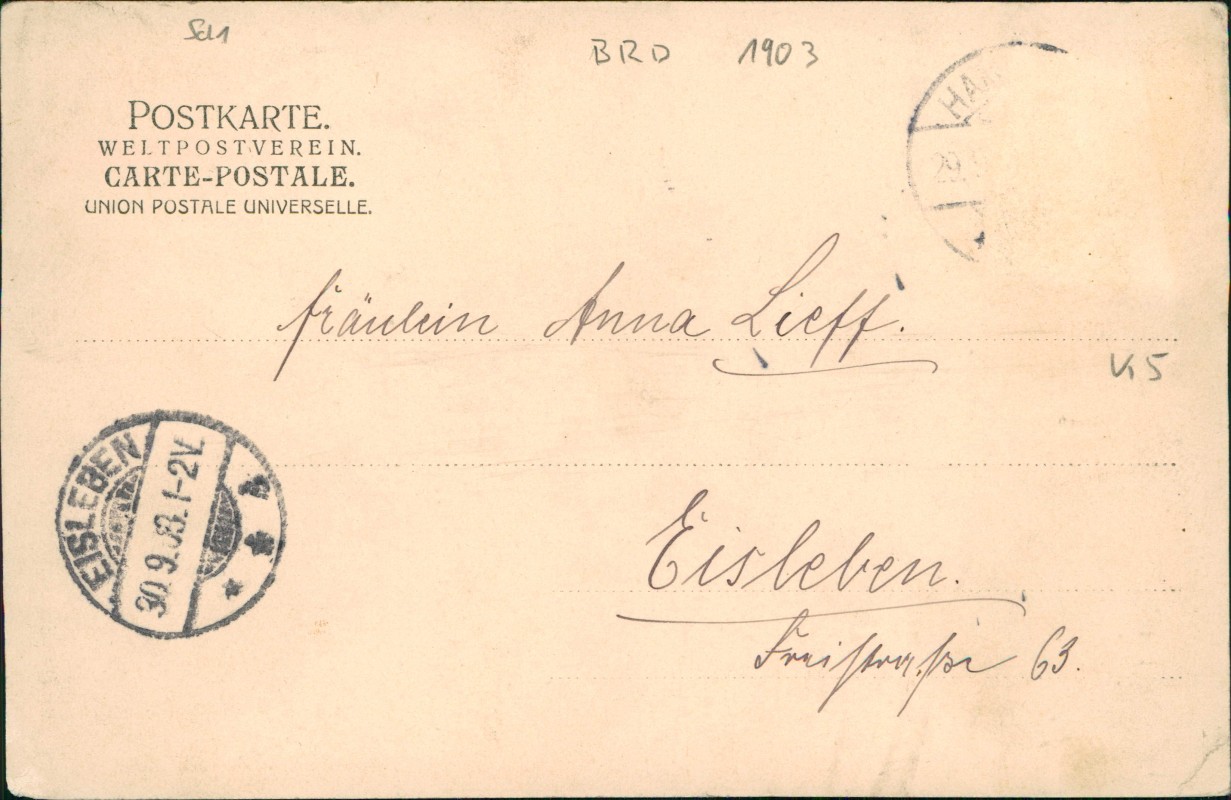 Sd1
BRD 1903
POSTKARTE.
WELTPOSTVEREIN.
CARTE-POSTALE.
UNION POSTALE UNIVERSELLE.
HA
29.
Fräulein Anna Lieff.
K5
EISLEBEN
30.9.03.1-2V.
Eisleben.
Freistraße 63.